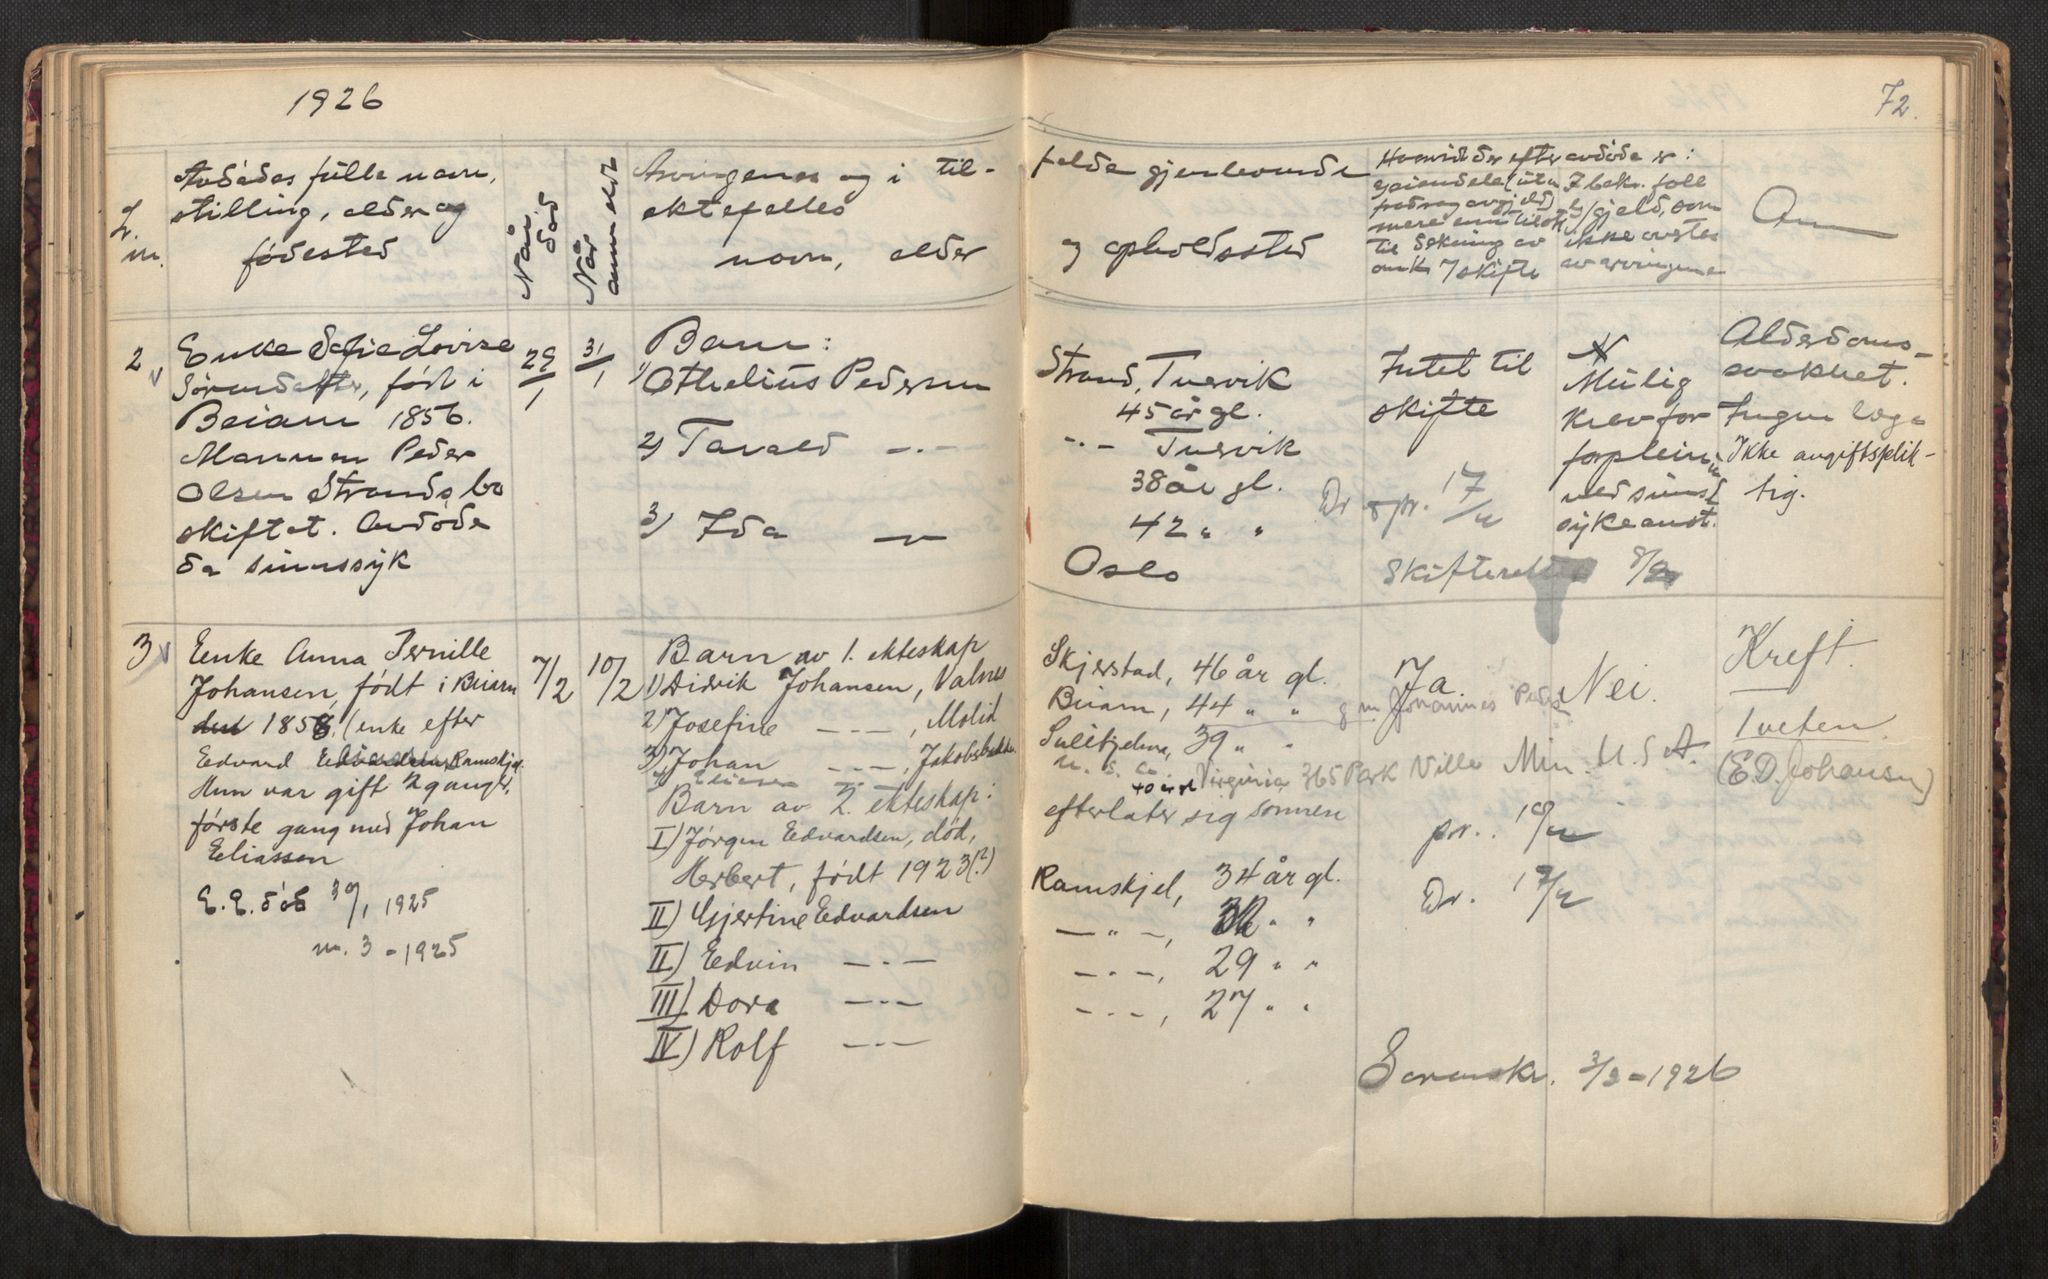 1926
L. nr.
Avdødes fulle navn,
stilling, alder og
fødested
Når død
När anmeldt
Arvingenes og i til-
ektefelles
navn, alder
2
Enke Sofie Lovise
Sørensdatter, født i
Beiarn 1856.
Mannen Peder
Olsen Strands bo
skiftet. Avdøde
va sinnssyk
29/1
31/1
Barn:
1) Othelius Pedersen
2) Tarald —.—
3) Ida —
3
Enke Anna Pernille
Johansen, født i Beiarn
1858, (enke efter
Edvard Edvardsen, Ramskjel
Hun var gift 2 ganger,
første gang med Johan
Eliassen
E. E. död 30/1 1925
nr. 3 - 1925
7/2
10/2
Barn av 1. ekteskap
1) Didrik Johansen, Valnes
2) Josefine —.—, Molid
3) Johan —.—, Jakobsbakken
Barn av 2. ekteskap:
I) Jørgen Edvardsen, død,
Herbert, født 1923(?)
II) Hjertine Edvardsen
II) Edvin —.—
III) Dora —.—
IV) Rolf —.—
72.
felde gjenlevende
og opholdssted
Hvorvidt der efter avdøde er:
til dekning av
omk. 7 skifte
7 bekr. fall
gjeld, som
ikke overtas
av arvingene
Anm
Strand, Tuervik
45 år gl.
-.- Tuervik
38 år gl.
42 " "
Oslo
Intet til
skifte
Dr. opr. 17/2
Skifteretten 8/2
Mulig
krav for
forplein
ved sinns
sykeanst.
Alderdoms-
svakhet.
Ingen læge
Ikke avgiftsplik-
tig.
Skjerstad, 46 år gl.
Beiarn, 44 " " g.m. Johannes Peder
Sulitjelma, 39 " "
U. S. A. 40 år gl Virginia 365 Park Ville Min. U. S. A.
efterlater sig sønnen
Ramskjel, 34 år gl.
—"—, 32 " "
—.—, 29 " "
—.—, 27 " "
Ja.
Nei.
pr. 10/2
Dr. 17/2
Kreft.
1 veten.
(E D. Johansen)
3/3 - 1926